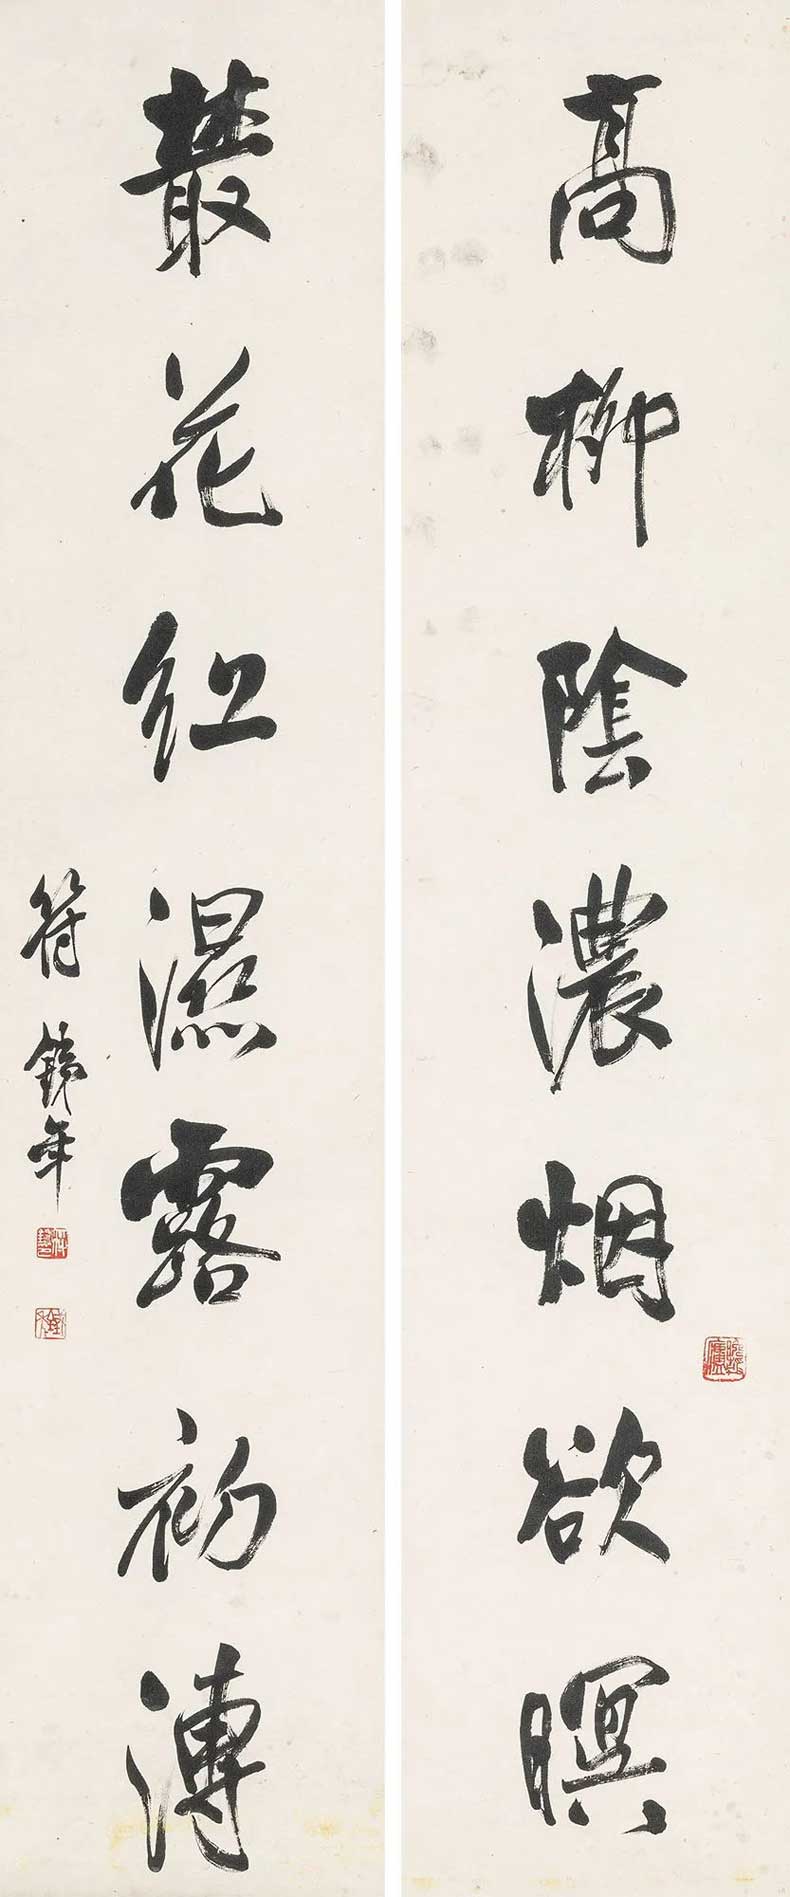 高柳陰濃烟欲暝
叢花紅濕露初漙
符鐵年